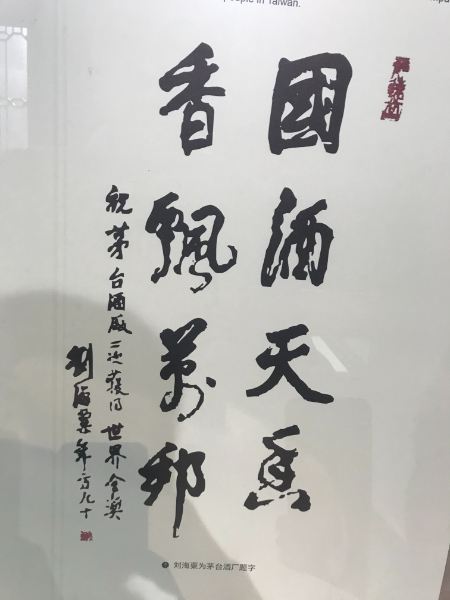 people in Taiwan.
國酒天香
香飄萬邦
祝茅台酒厰三次獲得世界金獎
劉海粟年方九十
刘海粟为茅台酒厂题字